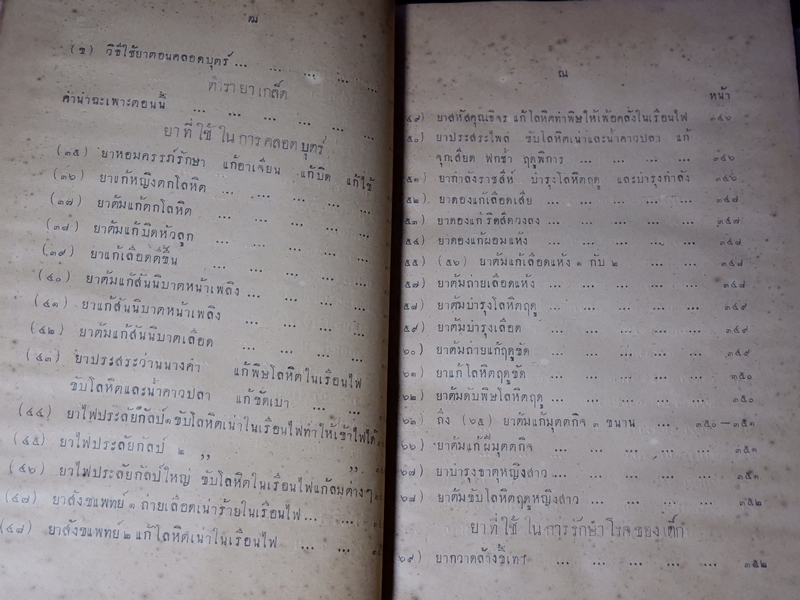 ฒ
(ข) วิธีใช้ยาตอนคลอดบุตร์ ... ... ... ...
ตำรายาเกล็ด
คำนำฉะเพาะตอนนี้ ... ... ... ...
ยาที่ใช้ในการคลอดบุตร์
(๓๕) ยาหอมครรภ์รักษา แก้อาเจียน แก้บิด แก้ไข้
(๓๖) ยาแก้หญิงตกโลหิต ... ... ... ...
(๓๗) ยาต้มแก้ตกโลหิต ... ... ... ...
(๓๘) ยาต้มแก้บิดหัวลูก ... ... ... ...
(๓๙) ยาแก้เลือดตีขึ้น ... ... ... ...
(๔๐) ยาต้มแก้สันนิบาตหน้าเพลิง ... ... ... ...
(๔๑) ยาแก้สันนิบาตหน้าเพลิง ... ... ... ...
(๔๒) ยาต้มแก้สันนิบาตเลือด ... ... ... ...
(๔๓) ยาประสระว่านนางคำ แก้พิษโลหิตในเรือนไฟ
ขับโลหิตและน้ำคาวปลา แก้ขัดเบา ... ...
(๔๔) ยาไฟประลัยกัลป์ ๑ ขับโลหิตเน่าในเรือนไฟทำให้เข้าไฟได้
(๔๕) ยาไฟประลัยกัลป์ ๒ ,, ,,
(๔๖) ยาไฟประลัยกัลป์ใหญ่ ขับโลหิตในเรือนไฟแก้ลมต่างๆ
(๔๗) ยาสังขแพทย์ ๑ ถ่ายเลือดเน่าร้ายในเรือนไฟ ... ...
(๔๘) ยาสังขแพทย์ ๒ แก้โลหิตเน่าในเรือนไฟ ... ...
ณ
หน้า
๔๙) ยาสหัสคุณธิจร แก้โลหิตทำพิษให้เพ้อคลั่งในเรือนไฟ ๓๔๖
๕๐) ยาประสระไพล ขับโลหิตเน่าและน้ำคาวปลา แก้
จุกเสียด ฟกช้ำ ฤดูพิการ ... ... ... ... ๓๔๖
๕๑) ยากำลังราชสีห์ บำรุงโลหิตฤดู และบำรุงกำลัง ๓๔๖
๕๒) ยาดองแก้เลือดเสีย ... ... ... ... ๓๔๗
๕๓) ยาดองแก้ริดสีดวงลง ... ... ... ... ๓๔๗
๕๔) ยาดองแก้ผอมแห้ง ... ... ... ... ๓๔๘
๕๕) (๕๖) ยาต้มแก้เลือดแห้ง ๑ กับ ๒ ... ... ๓๔๘
๕๗) ยาต้มถ่ายเลือดแห้ง ... ... ... ... ๓๔๘
๕๘) ยาต้มบำรุงโลหิตฤดู ... ... ... ... ๓๔๙
๕๙) ยาต้มบำรุงเลือด ... ... ... ... ๓๔๙
๖๐) ยาต้มถ่ายแก้ฤดูขัด ... ... ... ... ๓๔๙
๖๑) ยาแก้โลหิตฤดูขัด ... ... ... ... ๓๕๐
๖๒) ยาต้มดับพิษโลหิตฤดู ... ... ... ... ๓๕๐
๖๓) ถึง (๖๕) ยาต้มแก้มุตตกิจ ๓ ขนาน ... ๓๕๐—๓๕๑
๖๖) ยาต้มแก้ฝีมุตตกิจ ... ... ... ... ๓๕๑
๖๗) ยาบำรุงธาตุหญิงสาว ... ... ... ... ๓๕๑
๖๘) ยาต้มขับโลหิตฤดูหญิงสาว ... ... ... ๓๕๒
ยาที่ใช้ในการรักษาโรคของเด็ก
๖๙) ยากวาดล้างขี้เทา ... ... ... ... ๓๕๒